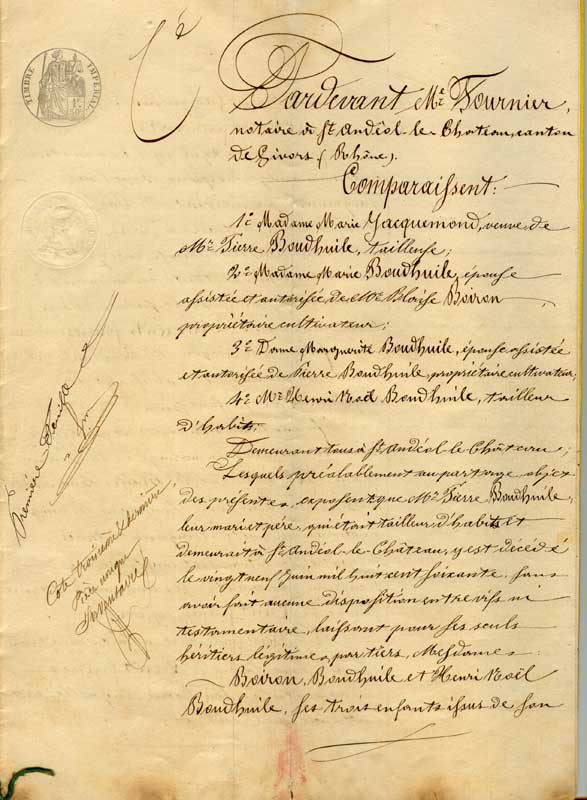 TIMBRE IMPERIAL
Pardevant Me Fournier,
notaire à St Andéol-le-Château, canton
de Givors (Rhône).
Comparaissent:
1o Madame Marie Jacquemond, veuve de
Mr Pierre Boudhuile, tailleuse;
2o Madame Marie Boudhuile, épouse
assistée et autorisée de Mr Blaise Boiron
propriétaire cultivateur;
3o Dame Marguerite Boudhuile, épouse assistée
et autorisée de Pierre Boudhuile, propriétaire cultivateur;
4o Mr Henri Noël Boudhuile, tailleur
d'habits;
Demeurant tous à St Andéol-le-Château;
Lesquels préalablement au partage objet
des présentes, exposent que Mr Pierre Boudhuile
leur mari et père, qui était tailleur d'habits et
demeurait à St Andéol-le-Château, y est décédé
le vingt neuf Juin mil huit cent soixante, sans
avoir fait aucune disposition entre vifs ni
testamentaire, laissant pour ses seuls
héritiers légitimes portiers, Mesdames
Boiron, Boudhuile et Henri Noël
Boudhuile, ses trois enfants issus de son
Première
Cote troisième & dernière
Pièce unique